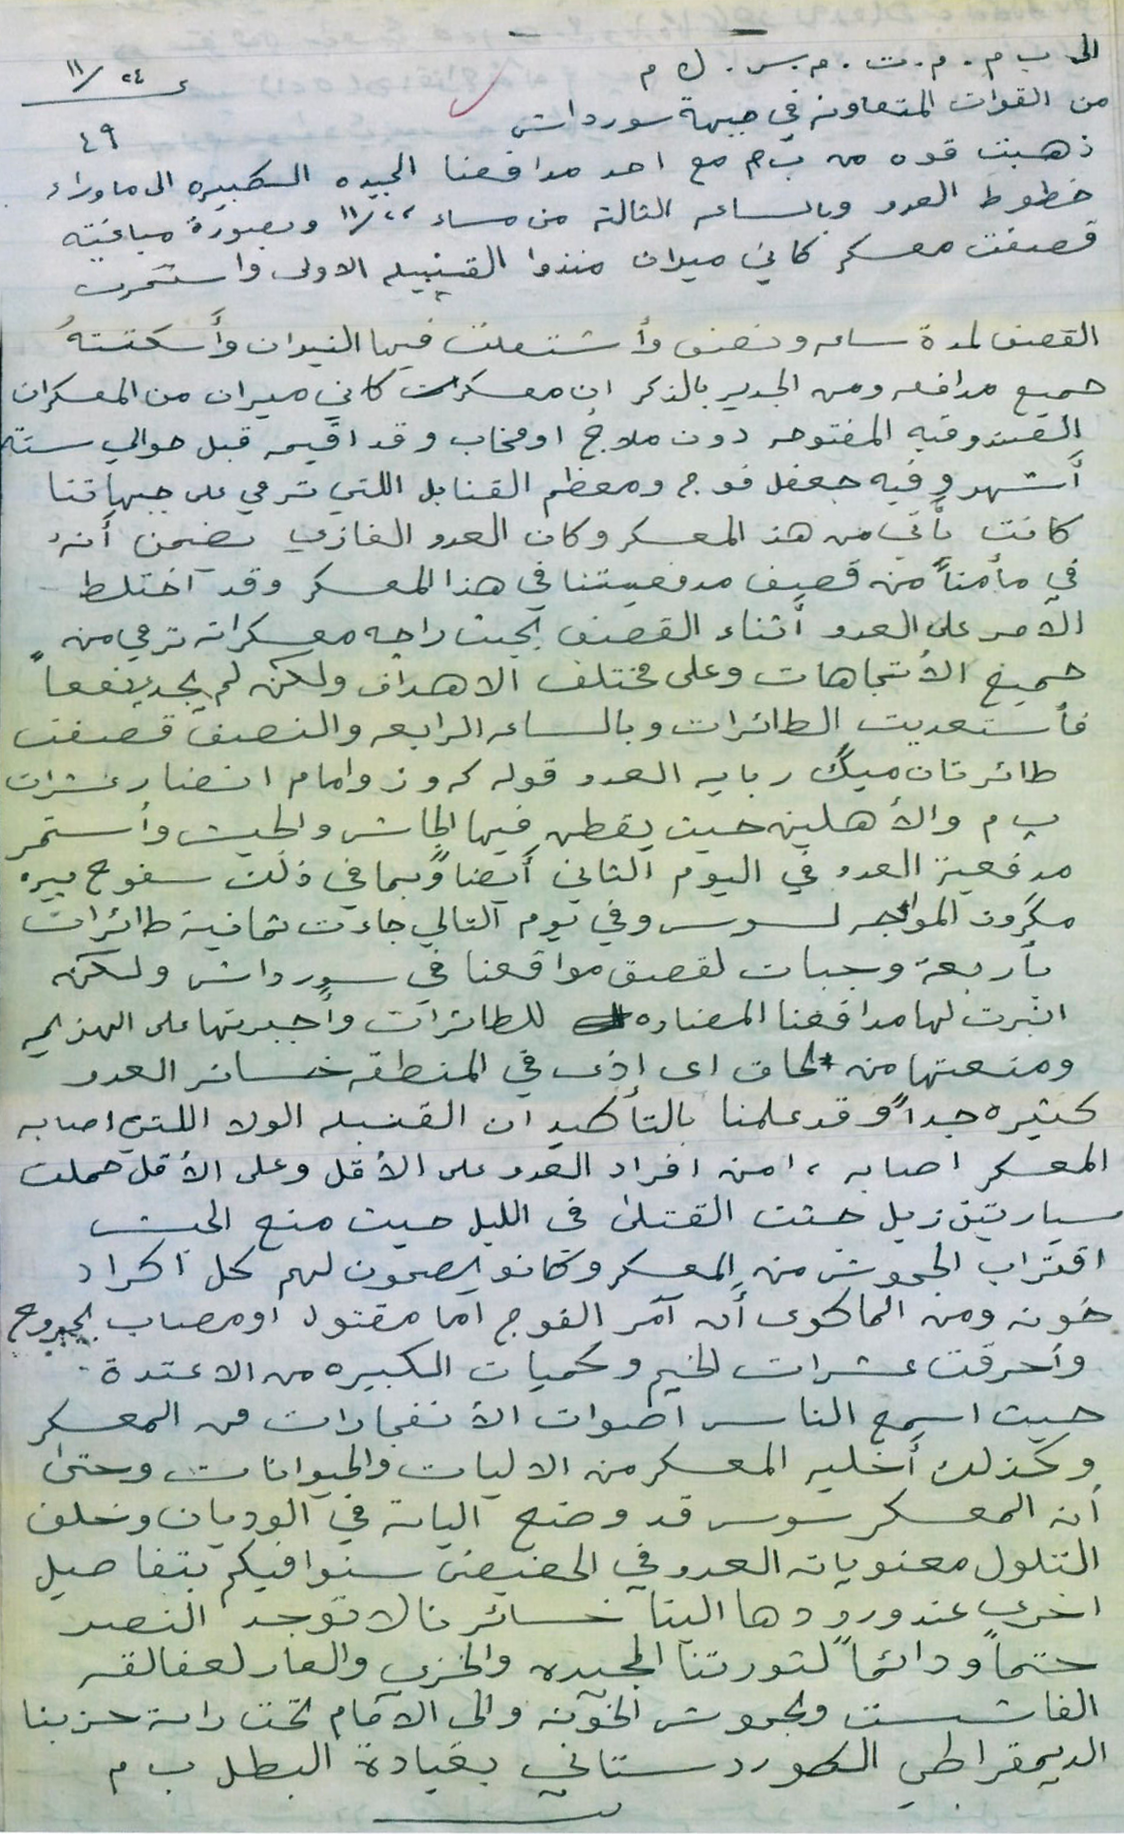 الى ب م . م . ت . م . س . ل م
ع ٢٤/١١
من القوات المتعاونه في جبهة سورداش
٤٩
ذهبت قوه من ب م مع احد مدافعنا الجيده الكبيره الى ماوراء
خطوط العدو وبالساعه الثالثة من مساء ٢٢/١١ وبصورة مباغته
قصفت معسكر كاني ميران منذوا القنبيله الاولى واستمرت
القصف لمدة ساعه ونصف وأشتعلت فيها النيران وأسكتتهُ
جميع مدافعه ومن الجدير بالذكر ان معسكر كاني ميران من المعسكرات
الصندوقيه المفتوحه دون ملاجئ او مخاب وقد اقيمه قبل حوالي سته
أشهر وفيه جحفل فوج ومعظم القنابل اللتي ترمي على جبهاتنا
كانت يأتي من هذ المعسكر وكان العدو الغازي يضمن أنهُ
في مأمناً من قصف مدفعيتنا في هذا المعسكر وقد اختلط
الأمر على العدو أثناء القصف بحيث راحه معسكراته ترمي من
جميع الأتجاهات وعلى مختلف الاهداف ولكن لم يجد نفعاً
فأستعديت الطائرات وبالساعه الرابعه والنصف قصفت
طائرتان ميگ ربايه العدو قوله كه وز وامام انضار عشرات
ب م والأهلين حيث يقطن فيها الجاش والجيش وأستمر
مدفعية العدو في اليوم الثاني أيضاً وبما في ذلك سفوح پيره
مگرون المواجه لسوسر وفي يوم التالي جاءت ثمانية طائرات
بأربعة وجبات لقصف مواقعنا في سورداش ولكنه
انبرت لها مدافعنا المضاده للطائرات وأجبرتها على الهزيمه
ومنعتها من الحاق اى إذى في المنطقه خسائر العدو
كثيره جداً وقد علمنا بالتأكيد ان القنبله الولا اللتي اصابه
المعسكر اصابه ١٠ من افراد العدو على الأقل وعلى الأقل حملت
سيارتين زيل جثث القتلى في الليل حيث منع الجيش
اقتراب الجحوش من المعسكر وكانو يصيحون لهم كل اكراد
خونه ومن المأكوى أن آمر الفوج اما مقتول او مصاب بجروح
وأحرقت عشرات الخيم وكميات الكبيره من الاعتدة
حيث اسمع الناس اصوات الأنفجارات من المعسكر
وكذلك أخليه المعسكر من الاليات والحيوانات وحتى
أن المعسكر سوسر قد وضع الياته في الوديان وخلف
التلول معنويات العدو في الحضيض سنوافيكم بتفاصيل
اخرى عند ورودها الينا خسائرنا لا توجد النصر
حتماً ودائماً لثورتنا المجيده والخزي والعار لعفالقه
الفاشست ولجحوش الخونه والى الأمام تحت راية حزبنا
الديمقراطي الكوردستاني بقيادة البطل ب م